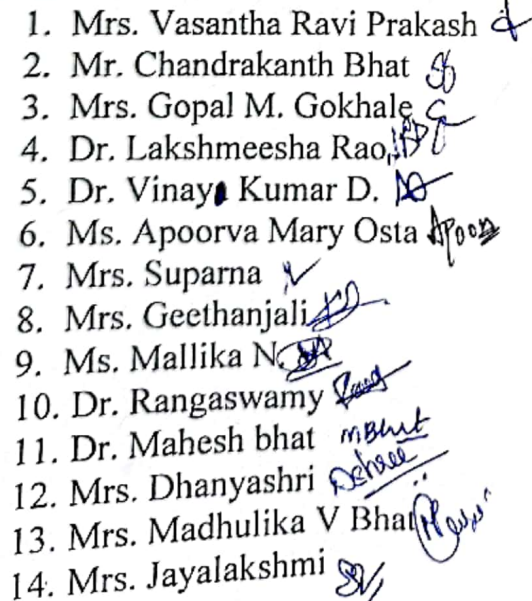 1. Mrs. Vasantha Ravi Prakash
2. Mr. Chandrakanth Bhat
3. Mrs. Gopal M. Gokhale
4. Dr. Lakshmeesha Rao,
5. Dr. Vinay Kumar D.
6. Ms. Apoorva Mary Osta Apoorva
7. Mrs. Suparna
8. Mrs. Geethanjali
9. Ms. Mallika N.
10. Dr. Rangaswamy
11. Dr. Mahesh bhat mBhat
12. Mrs. Dhanyashri
13. Mrs. Madhulika V Bhat
14. Mrs. Jayalakshmi